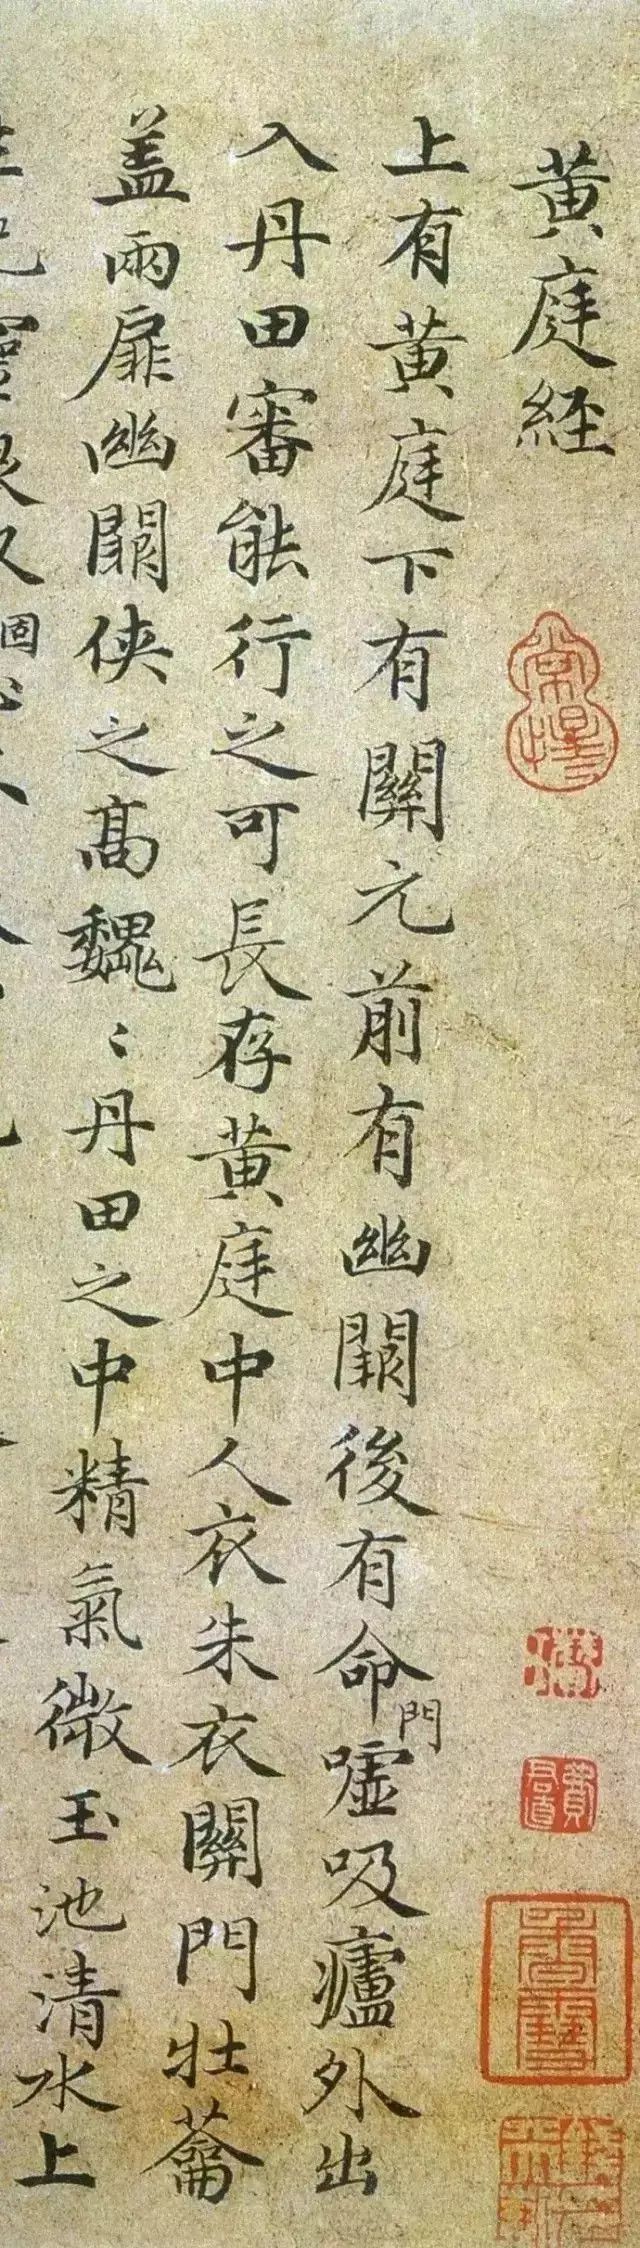 黄庭經
上有黄庭下有關元前有幽闕後有命門噓吸廬外出
入丹田審能行之可長存黄庭中人衣朱衣關門壮蘥
盖兩扉幽闕侠之高巍〻丹田之中精氣微玉池清水上
固